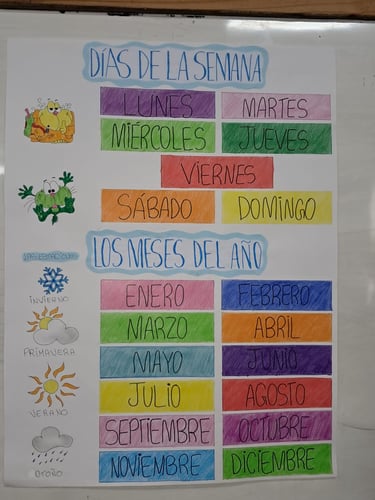 DÍAS DE LA SEMANA
LUNES MARTES
MIÉRCOLES JUEVES
VIERNES
SÁBADO DOMINGO
LOS MESES DEL AÑO
LAS ESTACIONES
INVIERNO
PRIMAVERA
VERANO
OTOÑO
ENERO FEBRERO
MARZO ABRIL
MAYO JUNIO
JULIO AGOSTO
SEPTIEMBRE OCTUBRE
NOVIEMBRE DICIEMBRE